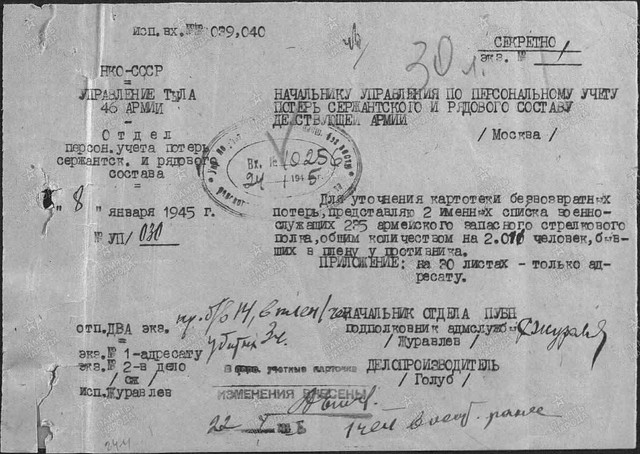 исп.вх.№№ 039,040
30 л.
СЕКРЕТНО
экз. № 1
НКО-СССР
УПРАВЛЕНИЕ ТЫЛА
46 АРМИИ
Отдел
персон.учета потерь
сержантск. и рядового
состава
"8" января 1945 г.
№ УП/ 030
НАЧАЛЬНИКУ УПРАВЛЕНИЯ ПО ПЕРСОНАЛЬНОМУ УЧЕТУ
ПОТЕРЬ СЕРЖАНТСКОГО И РЯДОВОГО СОСТАВУ
ДЕЙСТВУЮЩЕЙ АРМИИ
/ Москва /
Вх. № 10256
24 1 1945
Для уточнения картотеки безвозвратных
потерь,представляю 2 именных списка военно-
служащих 235 армейского запасного стрелкового
полка,общим количеством на 2.016 человек,быв-
ших в плену у противника.
ПРИЛОЖЕНИЕ: на 30 листах - только ад-
ресату.
НАЧАЛЬНИК ОТДЕЛА ПУБП
подполковник адмслужбы
/ Журавлев /
ДЕЛОПРОИЗВОДИТЕЛЬ
/ Голуб /
отп.ДВА экз.
экз.№ 1-адресату
экз.№ 2-в дело
сж
исп.Журавлев
учетные карточки
ИЗМЕНЕНИЯ ВНЕСЕНЫ
22
1 чел ранее